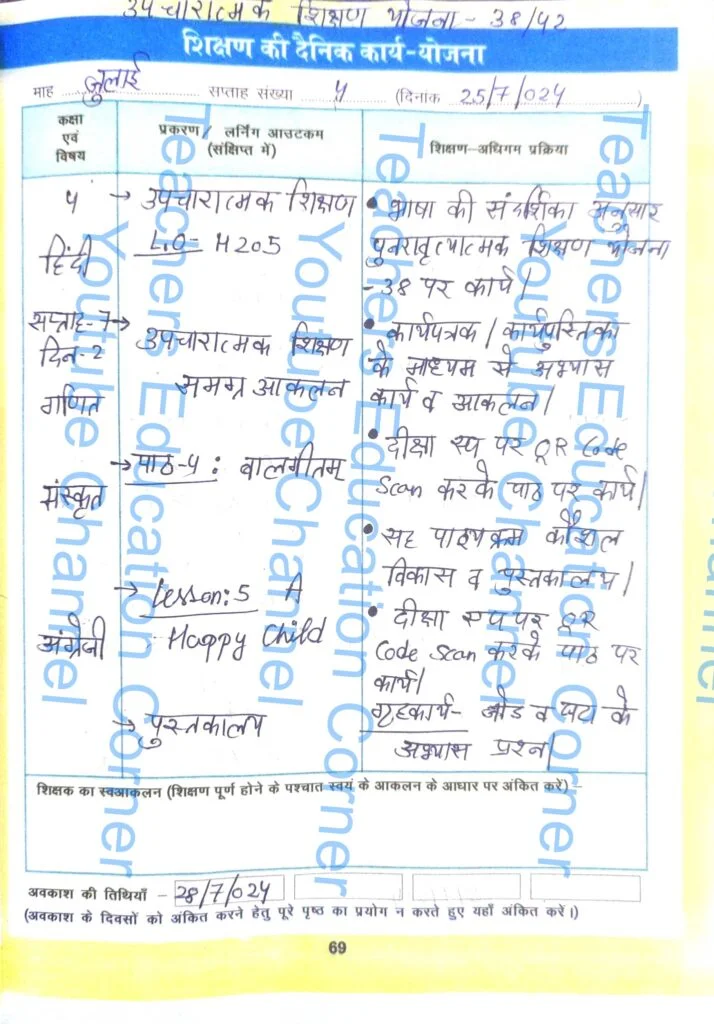 उपचारात्मक शिक्षण योजना - 38/42
शिक्षण की दैनिक कार्य-योजना
माह जुलाई सप्ताह संख्या 4 (दिनांक 25/7/024)
कक्षा एवं विषय
प्रकरण / लर्निंग आउटकम (संक्षिप्त में)
शिक्षण-अधिगम प्रक्रिया
5
हिंदी
सप्ताह-7→
दिन-2
गणित
संस्कृत
अंग्रेजी
→ उपचारात्मक शिक्षण
L.O- H205
उपचारात्मक शिक्षण
समग्र आकलन
→ पाठ-5 : बालगीतम्
→ Lesson: 5 A
Happy Child
→ पुस्तकालय
• भाषा की संदर्शिका अनुसार
पुनरावृत्यात्मक शिक्षण योजना
-38 पर कार्य|
• कार्यपत्रक / कार्यपुस्तिका
के माध्यम से अभ्यास
कार्य व आकलन|
• दीक्षा एप पर QR Code
Scan करके पाठ पर कार्य|
• सह पाठ्यक्रम कौशल
विकास व पुस्तकालय|
• दीक्षा एप पर QR
Code Scan करके पाठ पर
कार्य|
गृहकार्य- जोड व घटा के
अभ्यास प्रश्न|
शिक्षक का स्वआकलन (शिक्षण पूर्ण होने के पश्चात स्वयं के आकलन के आधार पर अंकित करें) –
अवकाश की तिथियाँ – 28/7/024
(अवकाश के दिवसों को अंकित करने हेतु पूरे पृष्ठ का प्रयोग न करते हुए यहाँ अंकित करें।)
69
Teachers Education Corner
Youtube Channel
Teachers Education Corner
Youtube Channel
Teachers Education Corner
Youtube Channel